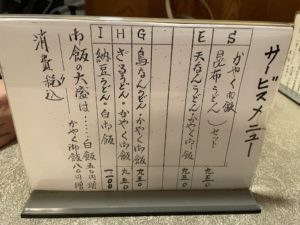 サービスメニュー
S かやく御飯
昆布うどん セット 九五〇
E 天ぷらうどん・かやく御飯 九五〇
G 鳥なんうどん・かやく御飯 九五〇
H ざるうどん・かやく御飯 九五〇
I 納豆うどん・白御飯 一一〇〇
御飯の大盛は……白飯五〇円増
かやく御飯八〇円増
消費税込